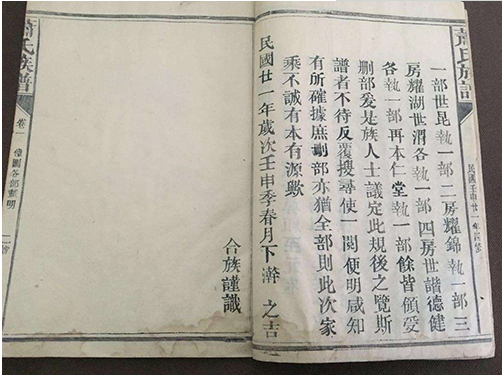 蕭氏族譜
民國壬申廿一年
一部世昆執一部二房耀錦執一部三
房耀湖世渭各執一部四房世諧德健
各執一部再本仁堂執一部餘皆領受
刪部爰是族人士議定此規後之覽斯
譜者不待反覆搜尋使一閱便明咸知
有所確據庶刪部亦猶全部則此次家
乘不誠有本有源歟
民國廿一年歲次壬申季春月下澣 之吉
合族謹識
蕭氏族譜
卷一